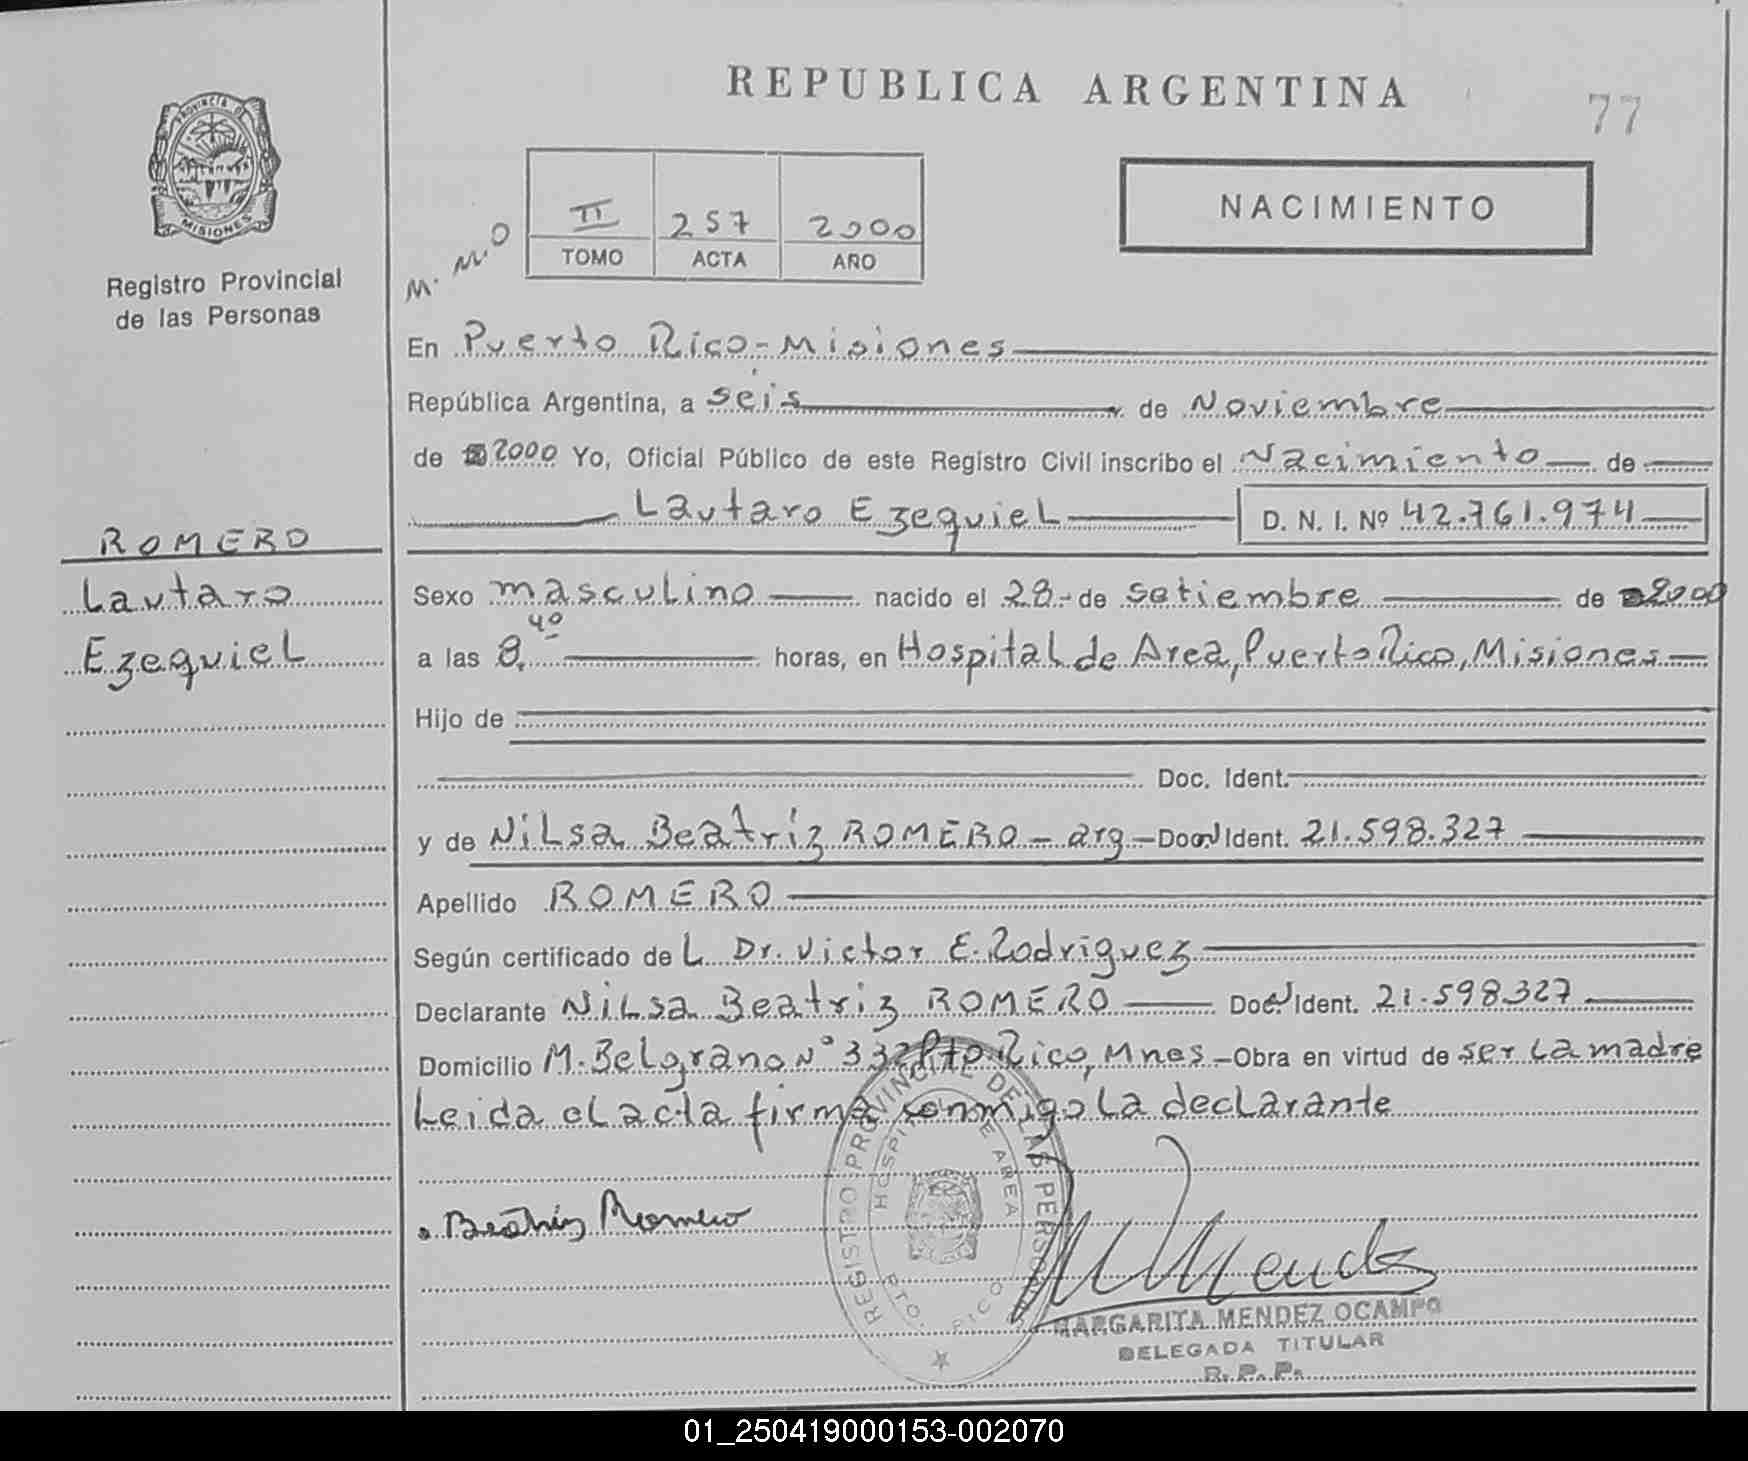 REPUBLICA ARGENTINA
77
PROVINCIA DE
MISIONES
Registro Provincial
de las Personas
M. M. O
II 257 2000
TOMO ACTA AÑO
NACIMIENTO
En Puerto Rico - Misiones
República Argentina, a seis de Noviembre
de 2000 Yo, Oficial Público de este Registro Civil inscribo el Nacimiento de
Lautaro Ezequiel D. N. I. Nº 42.761.974
ROMERO
Lautaro
Ezequiel
Sexo masculino nacido el 28 - de setiembre de 2000
a las 8.40 horas, en Hospital de Area, Puerto Rico, Misiones
Hijo de
Doc. Ident.
y de Nilsa Beatriz ROMERO - arg - Doc. Ident. 21.598.327
Apellido ROMERO
Según certificado de L Dr. Victor E. Rodriguez
Declarante Nilsa Beatriz ROMERO Doc. Ident. 21.598.327
Domicilio M. Belgrano Nº 332 Pto. Rico, Mnes - Obra en virtud de ser la madre
Leida el acta firma conmigo la declarante
Beatriz Romero
REGISTRO PROVINCIAL DE LAS PERSONAS
HOSPITAL DE AREA
PTO. RICO
MARGARITA MENDEZ OCAMPO
DELEGADA TITULAR
R. P. P.
01_250419000153-002070